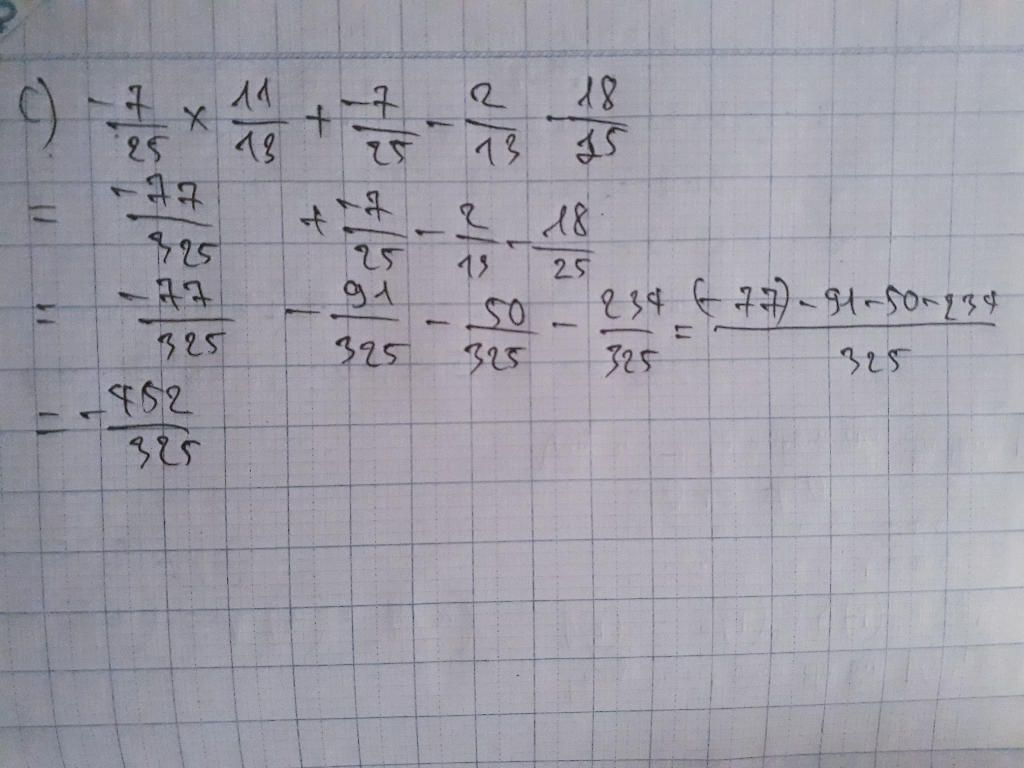 c) -7/25 × 11/13 + -7/25 - 2/13 - 18/25
= -77/325 + -7/25 - 2/13 - 18/25
= -77/325 - 91/325 - 50/325 - 234/325 = (-77)-91-50-234/325
= -452/325